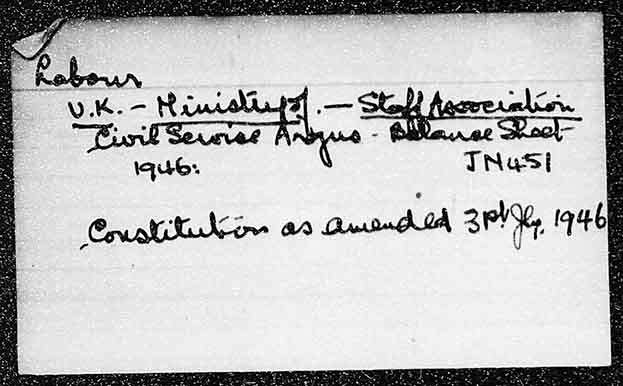 Labour
U.K. - Ministry of. - Staff Association
Civil Service Argus - Balance Sheet
1946: JN451
Constitution as amended 31st Jly. 1946